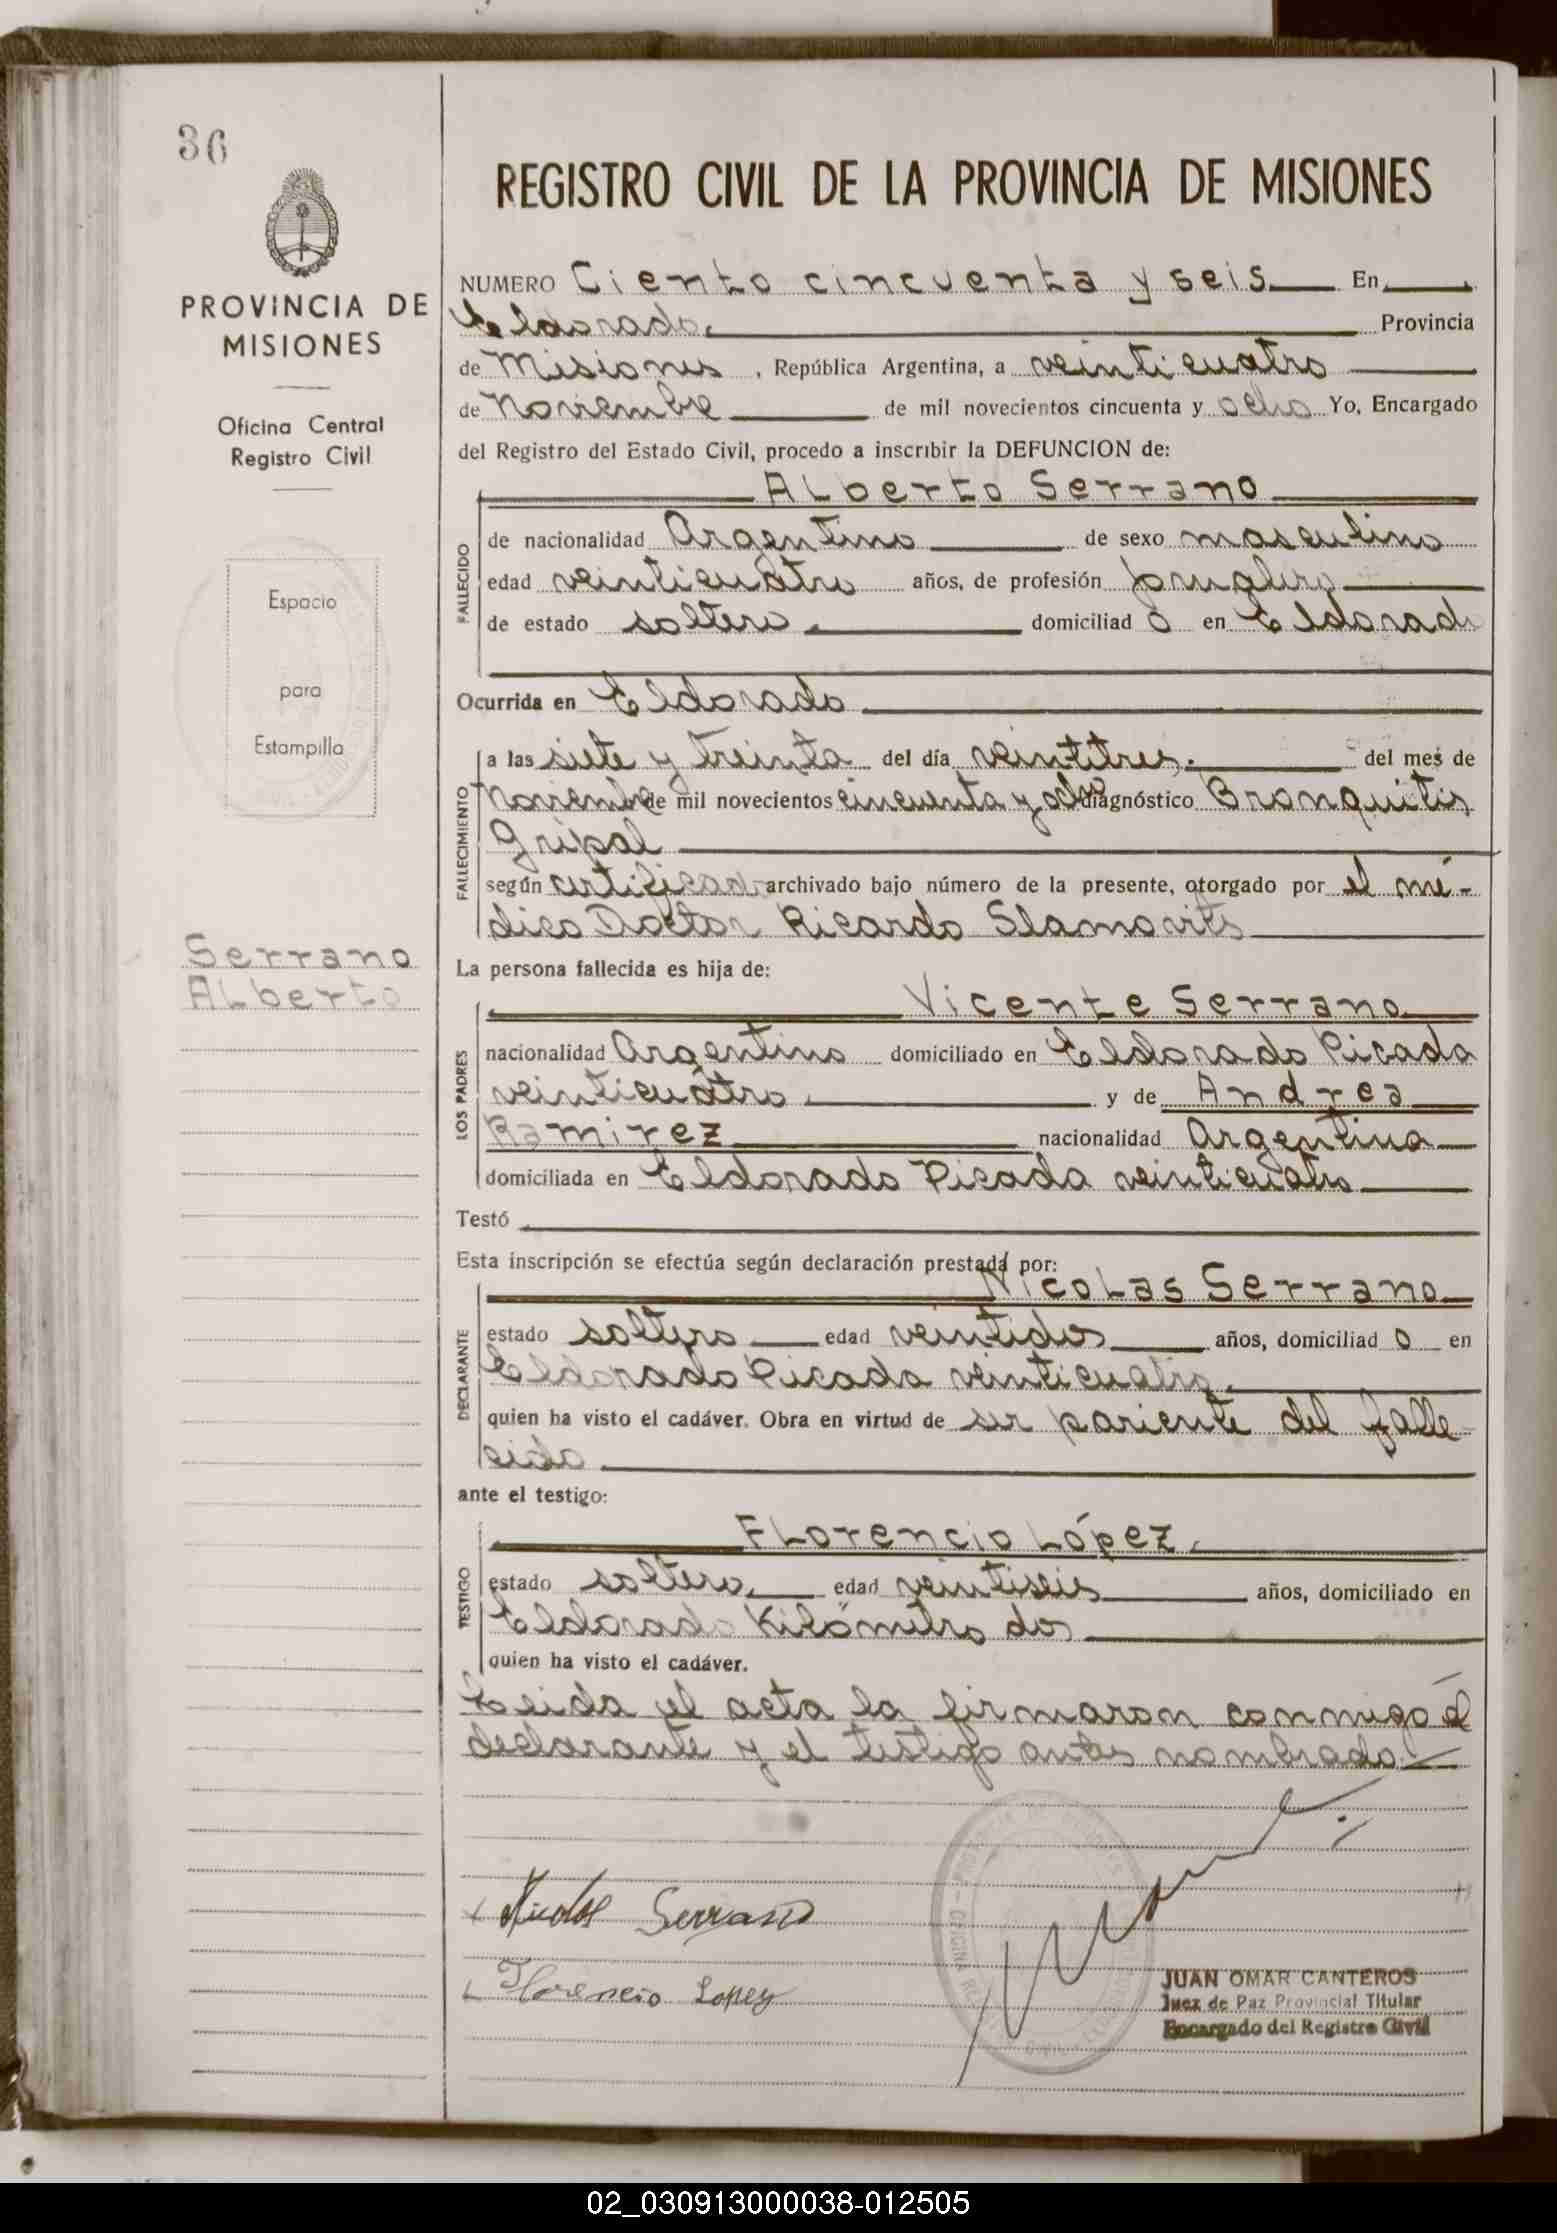 36
PROVINCIA DE
MISIONES
Oficina Central
Registro Civil
Espacio
para
Estampilla
Serrano
Alberto
REGISTRO CIVIL DE LA PROVINCIA DE MISIONES
NUMERO Ciento cincuenta y seis En
Eldorado. Provincia
de Misiones, República Argentina, a veinticuatro
de Noviembre de mil novecientos cincuenta y ocho Yo, Encargado
del Registro del Estado Civil, procedo a inscribir la DEFUNCION de:
Alberto Serrano
FALLECIDO
de nacionalidad Argentino de sexo masculino
edad veinticuatro años, de profesión jornalero
de estado soltero. domiciliad o en Eldorado
Ocurrida en Eldorado
FALLECIMIENTO
a las siete y treinta del día veintitres. del mes de
Noviembre de mil novecientos cincuenta y ocho diagnóstico Bronquitis
Gripal
según certificado archivado bajo número de la presente, otorgado por el mé-
dico Doctor Ricardo Slamovits
La persona fallecida es hija de:
LOS PADRES
Vicente Serrano
nacionalidad Argentino domiciliado en Eldorado Picada
veinticuatro. y de Andrea
Ramirez nacionalidad Argentina
domiciliada en Eldorado Picada veinticuatro
Testó
Esta inscripción se efectúa según declaración prestada por:
DECLARANTE
Nicolas Serrano
estado soltero edad veintidos años, domiciliad o en
Eldorado Picada veinticuatro.
quien ha visto el cadáver. Obra en virtud de ser pariente del falle-
cido
ante el testigo:
TESTIGO
Florencio López.
estado soltero. edad veintiseis años, domiciliado en
Eldorado Kilómetro dos
quien ha visto el cadáver.
Leida el acta la firmaron conmigo el
declarante y el testigo antes nombrado.
Nicolas Serrano
Florencio Lopez
JUAN OMAR CANTEROS
Juez de Paz Provincial Titular
Encargado del Registro Civil
02_030913000038-012505